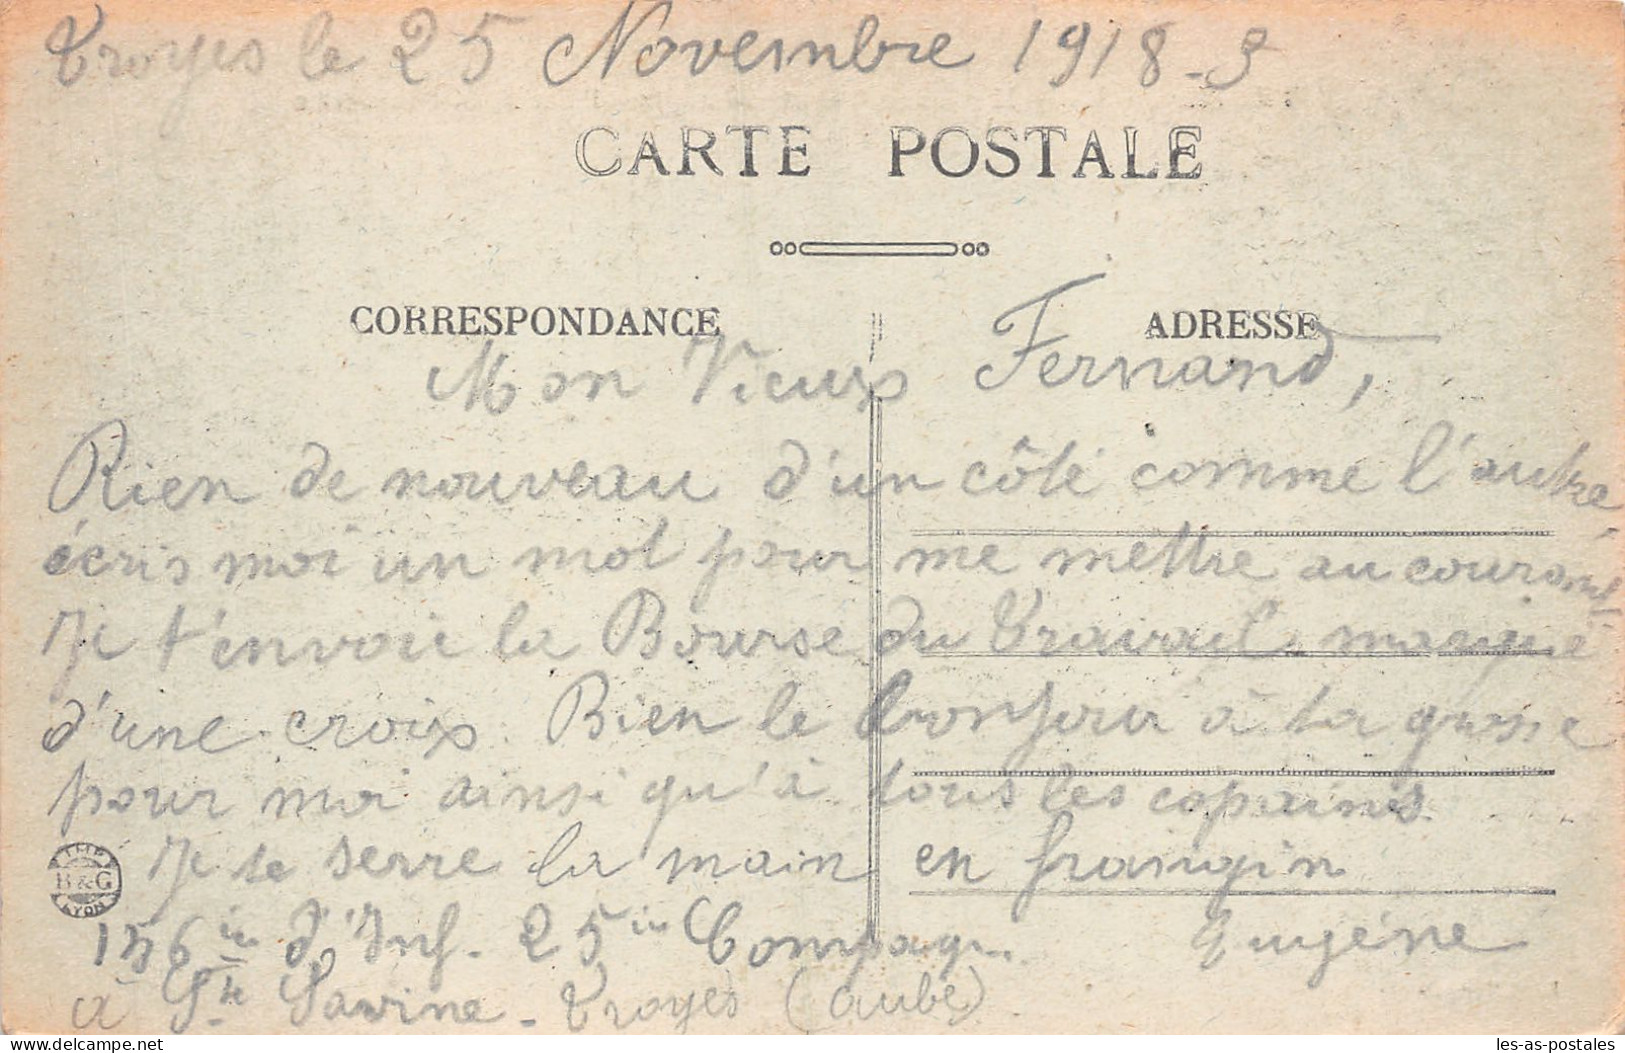 Troyes le 25 Novembre 1918
CARTE POSTALE
CORRESPONDANCE
ADRESSE
Mon Vieux Fernand,
Rien de nouveau d'un côté comme l'autre
écris moi un mot pour me mettre au courant
Je t'envoie la Bourse du Travail, marqué
d'une croix. Bien le bonjour à ta gosse
pour moi ainsi qu'à tous les copains
Je te serre la main en frangin
156 ie d'Inf. 25 ie Compag. Eugène
à Ste Savine - Troyes (Aube)
IMP
B & G
LYON
les-as-postales
delcampe.net